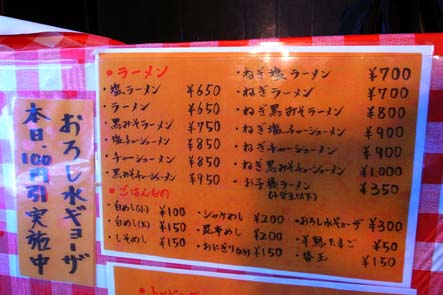 おろし水ギョーザ
本日、100円引実施中
・ラーメン
・塩ラーメン ¥650
・ラーメン ¥650
・黒みそラーメン ¥750
・塩チャーシューメン ¥850
・チャーシューメン ¥850
・黒みそチャーシューメン ¥950
・ねぎ塩ラーメン ¥700
・ねぎラーメン ¥700
・ねぎ黒みそラーメン ¥800
・ねぎ塩チャーシューメン ¥900
・ねぎチャーシューメン ¥900
・ねぎ黒みそチャーシューメン ¥1,000
・お子様ラーメン ¥350
(小学生以下)
・ごはんもの
・白めし(小) ¥100
・白めし(大) ¥150
・しそめし ¥150
・シャケめし ¥200
・昆布めし ¥200
・おにぎり ¥150
・おろし水ギョーザ ¥300
・半熟たまご ¥50
・替玉 ¥150
・トッピング